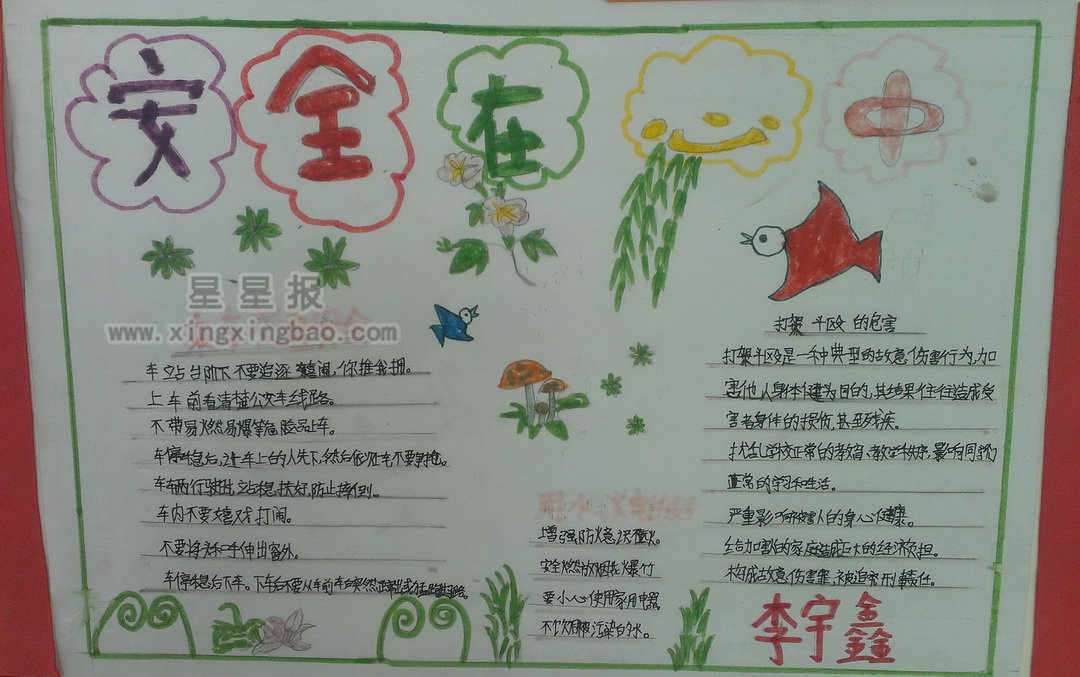 安全在心中
星星报
www.xingxingbao.com
车站台阶下不要追逐嬉闹,你推我拥。
上车前看清楚公交车线路。
不带易燃易爆等危险品上车。
车停稳后,让车上的人先下,然后依次上车,不要争抢。
车辆行驶中,站稳,扶好,防止摔倒。
车内不要嬉戏打闹。
不要将头和手伸出窗外。
车停稳后下车。下车后不要从车前车后突然
增强防火意识
安全燃放烟花爆竹
要小心使用家用电器
不饮用被污染的水。
打架斗殴的危害
打架斗殴是一种典型的故意伤害行为,加
害他人身体健康为目的,其结果往往造成受
害者身体的损伤,甚至残疾。
扰乱学校正常的教育、教学秩序,影响同学们
正常的学习和生活。
严重影响被害人的身心健康。
给加害的家庭造成巨大的经济负担。
构成故意伤害罪,被追究刑事责任。
李宇鑫